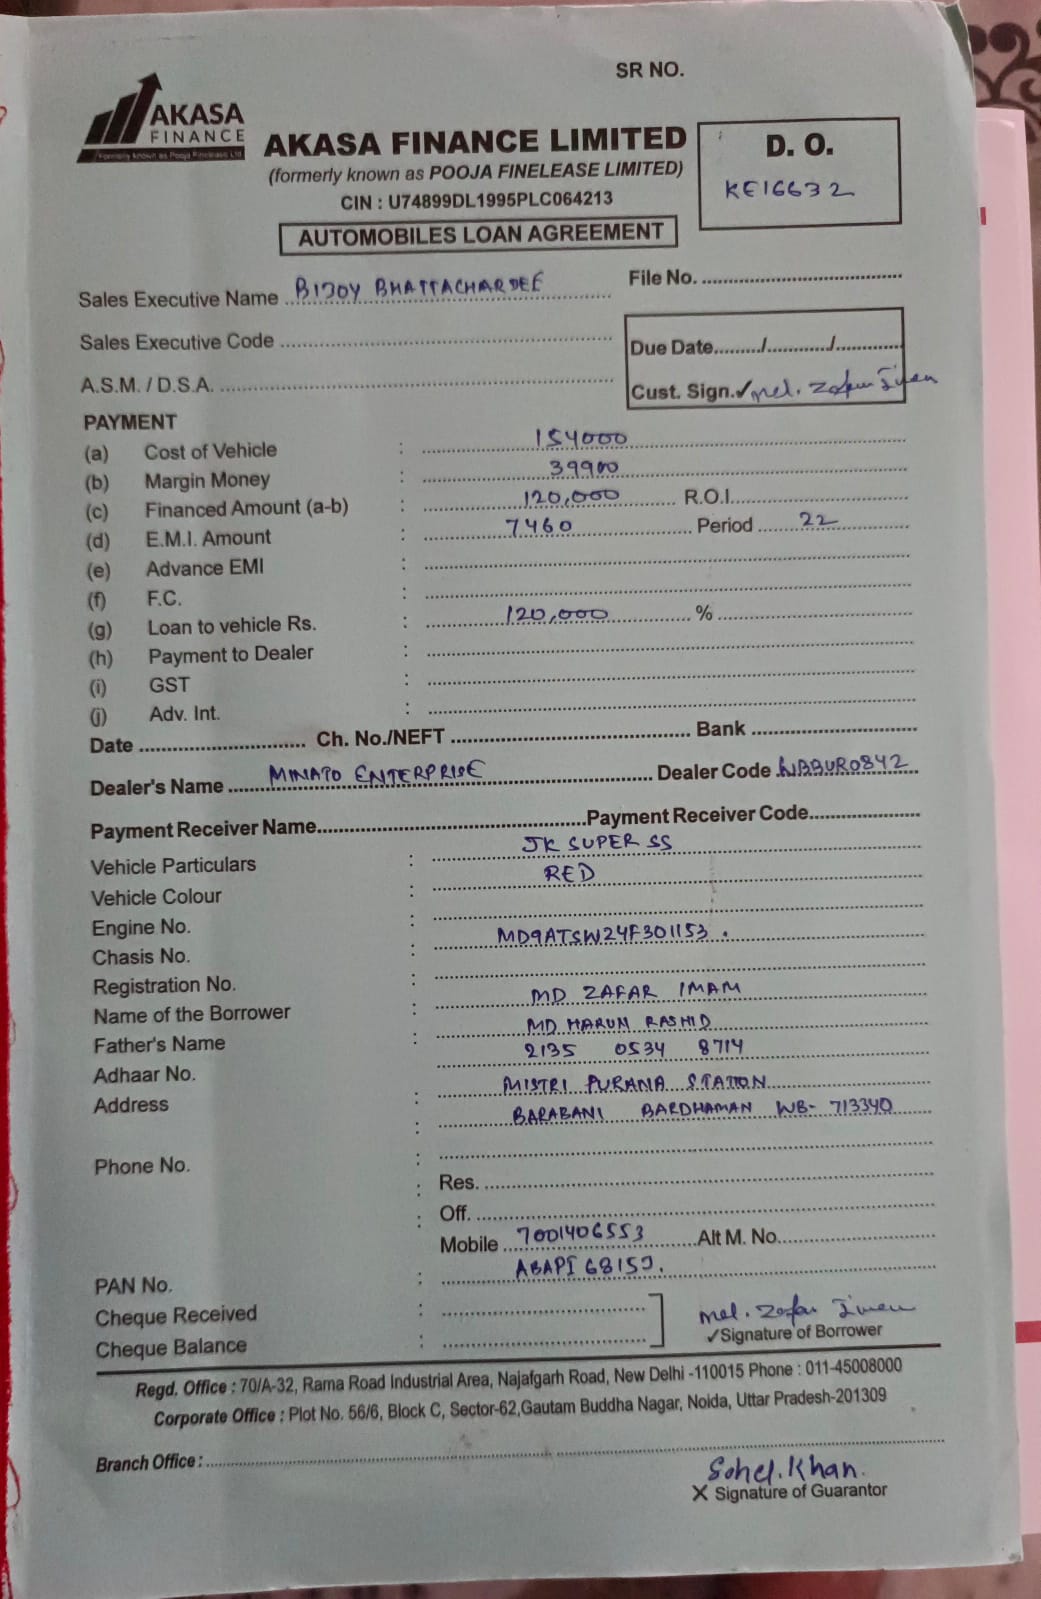 SR NO.
AKASA
FINANCE
Formerly known as Pooja Finelease Ltd
AKASA FINANCE LIMITED
(formerly known as POOJA FINELEASE LIMITED)
CIN : U74899DL1995PLC064213
AUTOMOBILES LOAN AGREEMENT
D. O.
KE16632
Sales Executive Name BIJOY BHATTACHARDEE
File No.
Sales Executive Code
Due Date........./.........../...........
A.S.M. / D.S.A.
Cust. Sign.✓ Md. Zafar Imam
PAYMENT
(a) Cost of Vehicle : 154000
(b) Margin Money : 39900
(c) Financed Amount (a-b) : 120,000 R.O.I.
(d) E.M.I. Amount : 7460 Period 22
(e) Advance EMI :
(f) F.C. :
(g) Loan to vehicle Rs. : 120,000 %
(h) Payment to Dealer :
(i) GST :
(j) Adv. Int. :
Date Ch. No./NEFT Bank
Dealer's Name MINATO ENTERPRISE Dealer Code WBBUR0842
Payment Receiver Name Payment Receiver Code
Vehicle Particulars : JK SUPER SS
Vehicle Colour : RED
Engine No. :
Chasis No. : MD9ATSW24F301153.
Registration No. :
Name of the Borrower : MD ZAFAR IMAM
Father's Name : MD HARUN RASHID
Adhaar No. 2135 0534 8714
Address : MISTRI PURANA STATION
: BARABANI BARDHAMAN WB- 713340
Phone No. :
: Res.
: Off.
Mobile 7001406553 Alt M. No.
PAN No. : ABAPI6815J.
Cheque Received :
Cheque Balance :
Md. Zafar Imam
✓Signature of Borrower
Regd. Office : 70/A-32, Rama Road Industrial Area, Najafgarh Road, New Delhi -110015 Phone : 011-45008000
Corporate Office : Plot No. 56/6, Block C, Sector-62,Gautam Buddha Nagar, Noida, Uttar Pradesh-201309
Branch Office :
Sohel.Khan.
X Signature of Guarantor